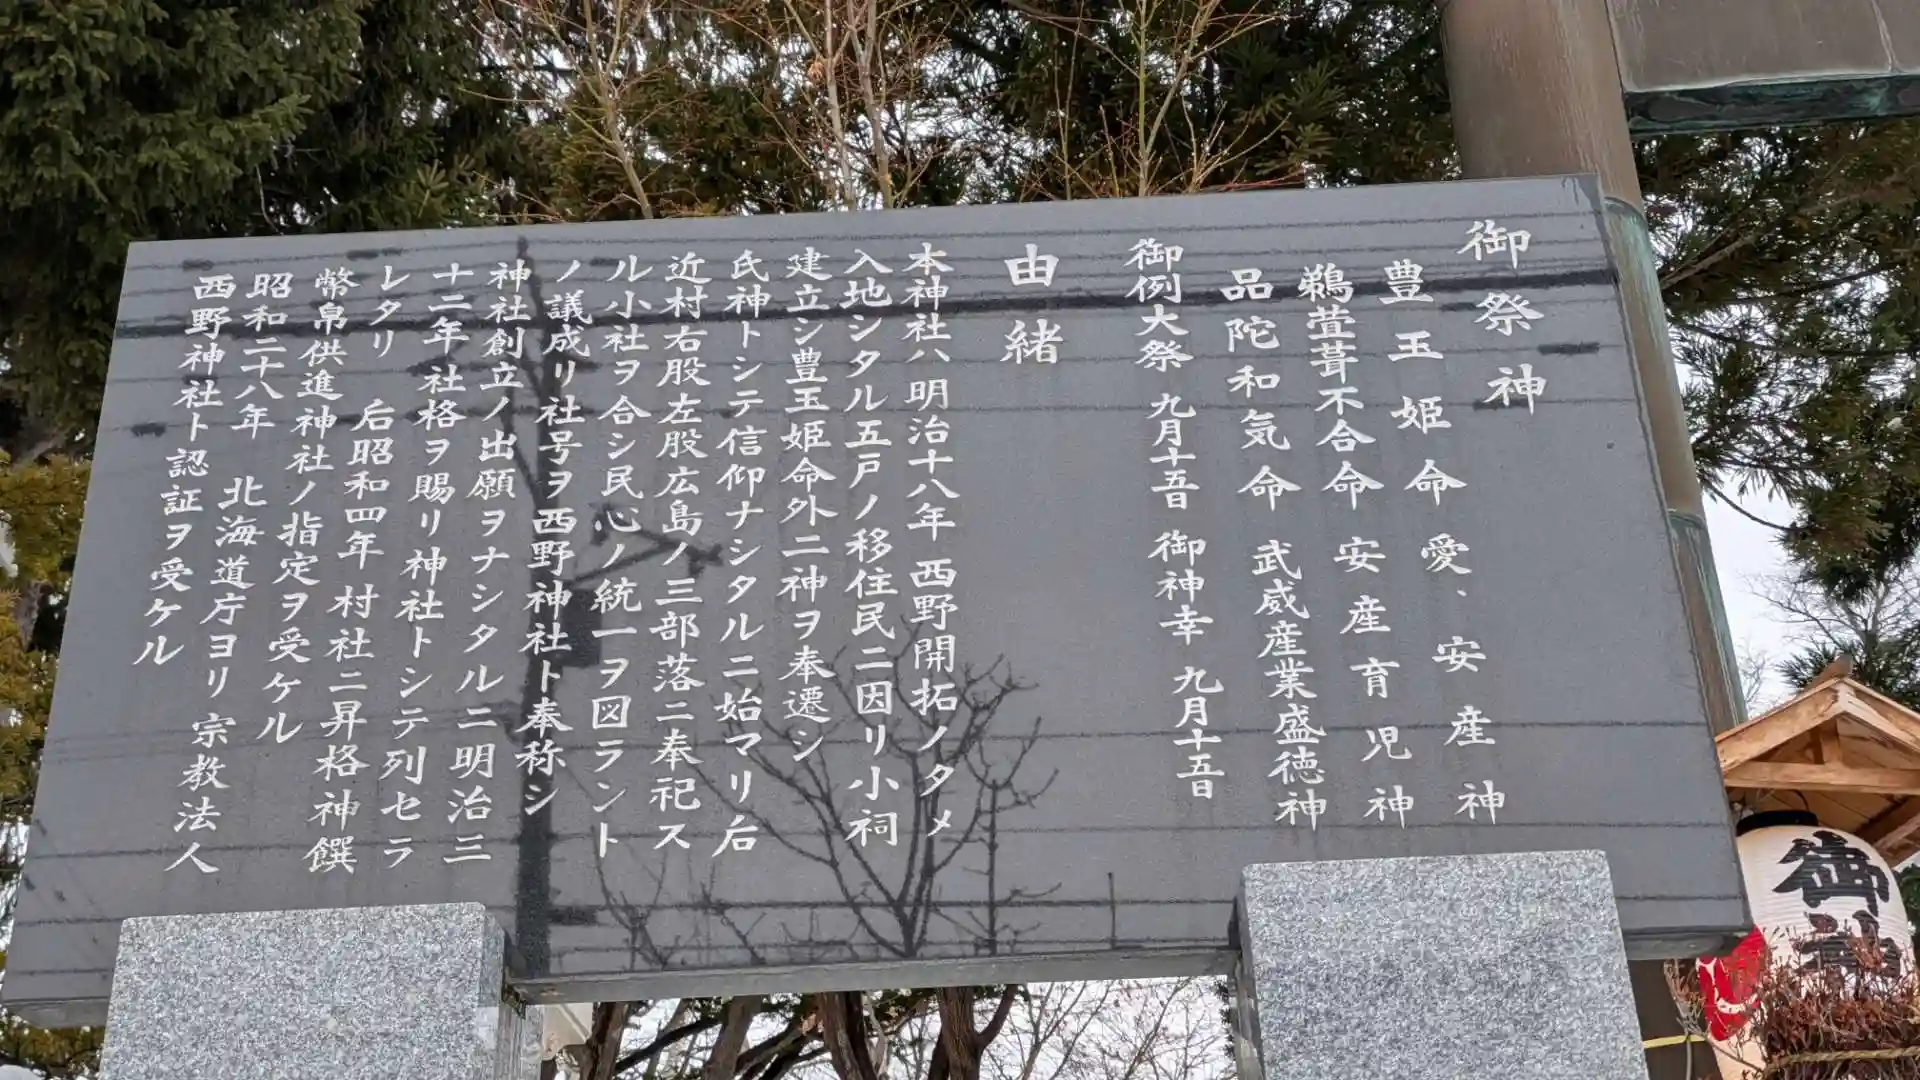 御祭神
豊玉姫命 愛、安産神
鵜萱葺不合命 安産育児神
品陀和気命 武威産業盛徳神
御例大祭 九月十五日 御神幸 九月十五日
由緒
本神社ハ明治十八年西野開拓ノタメ
入地シタル五戸ノ移住民ニ因リ小祠
建立シ豊玉姫命外二神ヲ奉遷シ
氏神トシテ信仰ナシタルニ始マリ后
近村右股左股広島ノ三部落ニ奉祀ス
ル小社ヲ合シ民心ノ統一ヲ図ラント
ノ議成リ社号ヲ西野神社ト奉称シ
神社創立ノ出願ヲナシタルニ明治三
十二年社格ヲ賜リ神社トシテ列セラ
レタリ 后昭和四年村社ニ昇格神饌
幣帛供進神社ノ指定ヲ受ケル
昭和二十八年 北海道庁ヨリ宗教法人
西野神社ト認証ヲ受ケル
御神